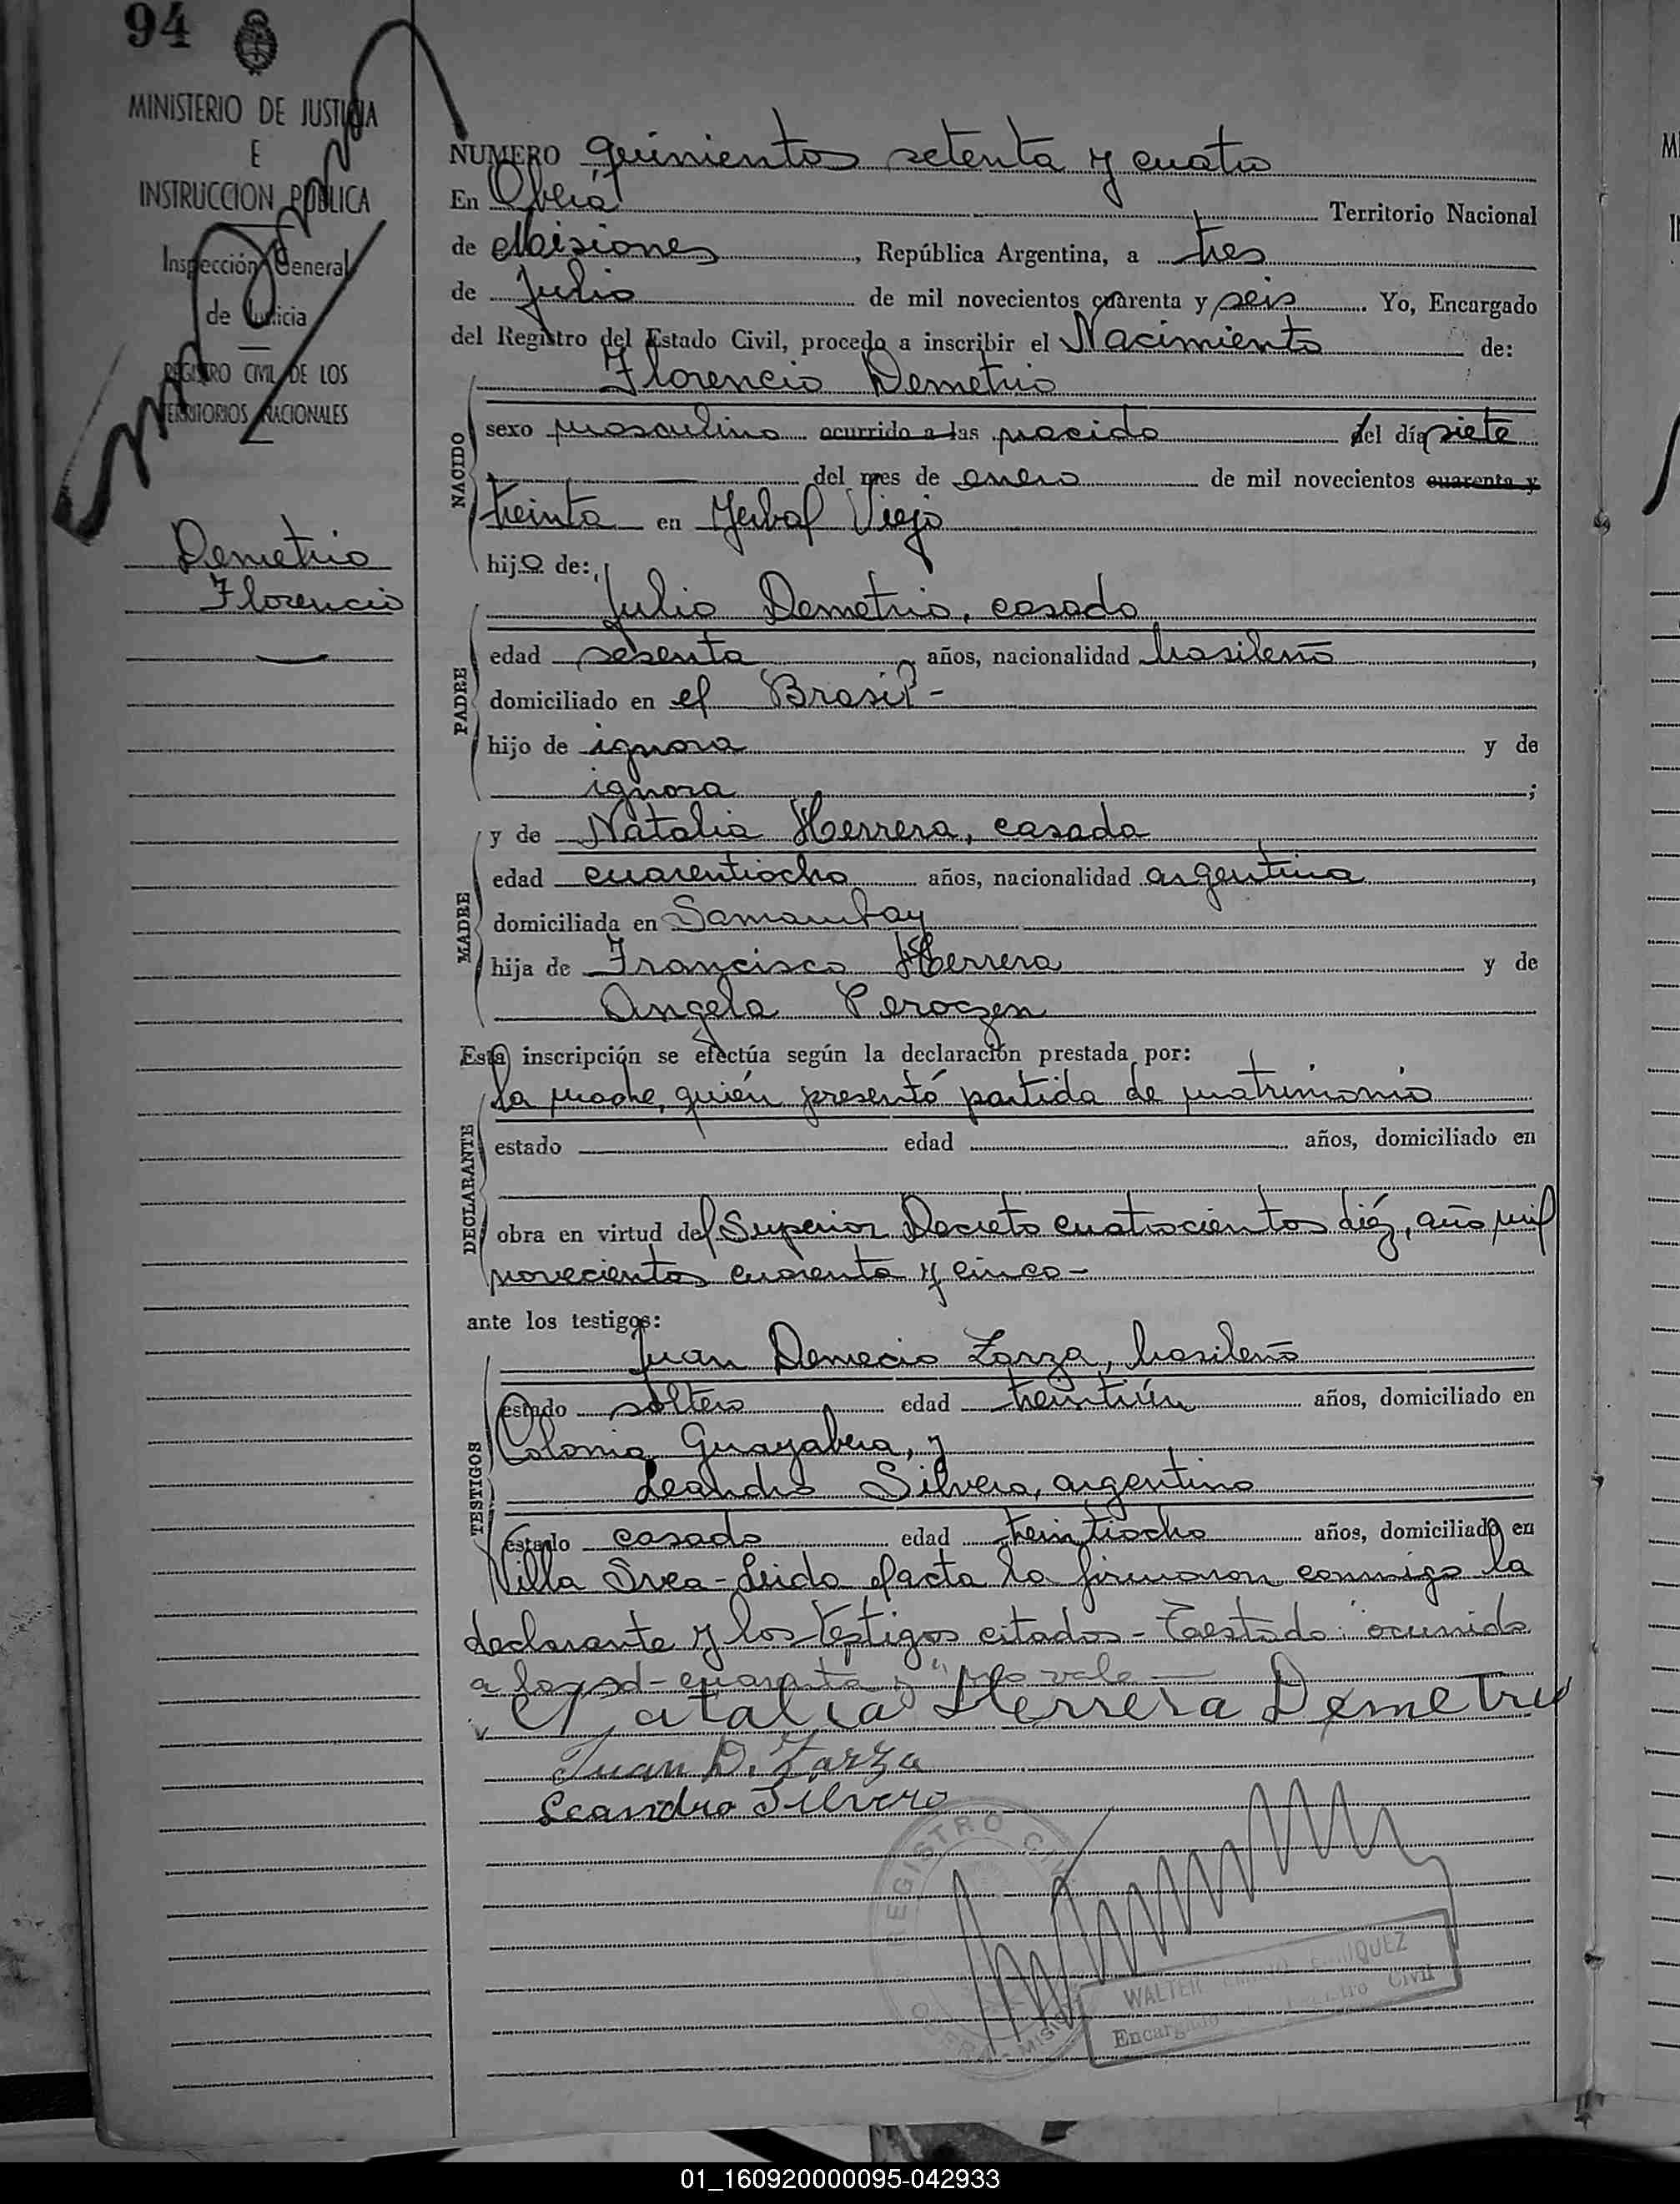 94
MINISTERIO DE JUSTICIA
E
INSTRUCCION PUBLICA
Inspección General
de Justicia
REGISTRO CIVIL DE LOS
TERRITORIOS NACIONALES
Demetrio
Florencio
NUMERO quinientos setenta y cuatro
En Oberá Territorio Nacional
de Misiones, República Argentina, a tres
de Julio de mil novecientos cuarenta y seis. Yo, Encargado
del Registro del Estado Civil, procedo a inscribir el Nacimiento de:
Florencio Demetrio
NACIDO
sexo masculino ocurrido a las nacido del día siete
del mes de enero de mil novecientos cuarenta y
treinta en Yerbal Viejo
hijo de:
PADRE
Julio Demetrio, casado
edad sesenta años, nacionalidad brasileño,
domiciliado en el Brasil-
hijo de ignora y de
ignora;
MADRE
y de Natalia Herrera, casada
edad cuarentiocho años, nacionalidad argentina,
domiciliada en Samambay
hija de Francisco Herrera y de
Angela Peroczen
Esta inscripción se efectúa según la declaración prestada por:
DECLARANTE
la madre, quién presentó partida de matrimonio
estado edad años, domiciliado en
obra en virtud del Superior Decreto cuatrocientos diéz, año mil
novecientos cuarenta y cinco-
ante los testigos:
TESTIGOS
Juan Demecio Zarza, brasileño
estado soltero edad treintiún años, domiciliado en
Colonia Guayabera, y
Leandro Silvero, argentino
estado casado edad treintiocho años, domiciliado en
Villa Svea- Leida el acta la firmaron conmigo la
declarante y los testigos citados- Testado: ocurrido
a las-d-cuarenta y" no vale
Natalia Herrera Demetrio
Juan D. Zarza
Leandro Silvero
REGISTRO CIVIL
OBERA - MISIONES
WALTER ENRIQUEZ
Encargado Registro Civil
01_160920000095-042933